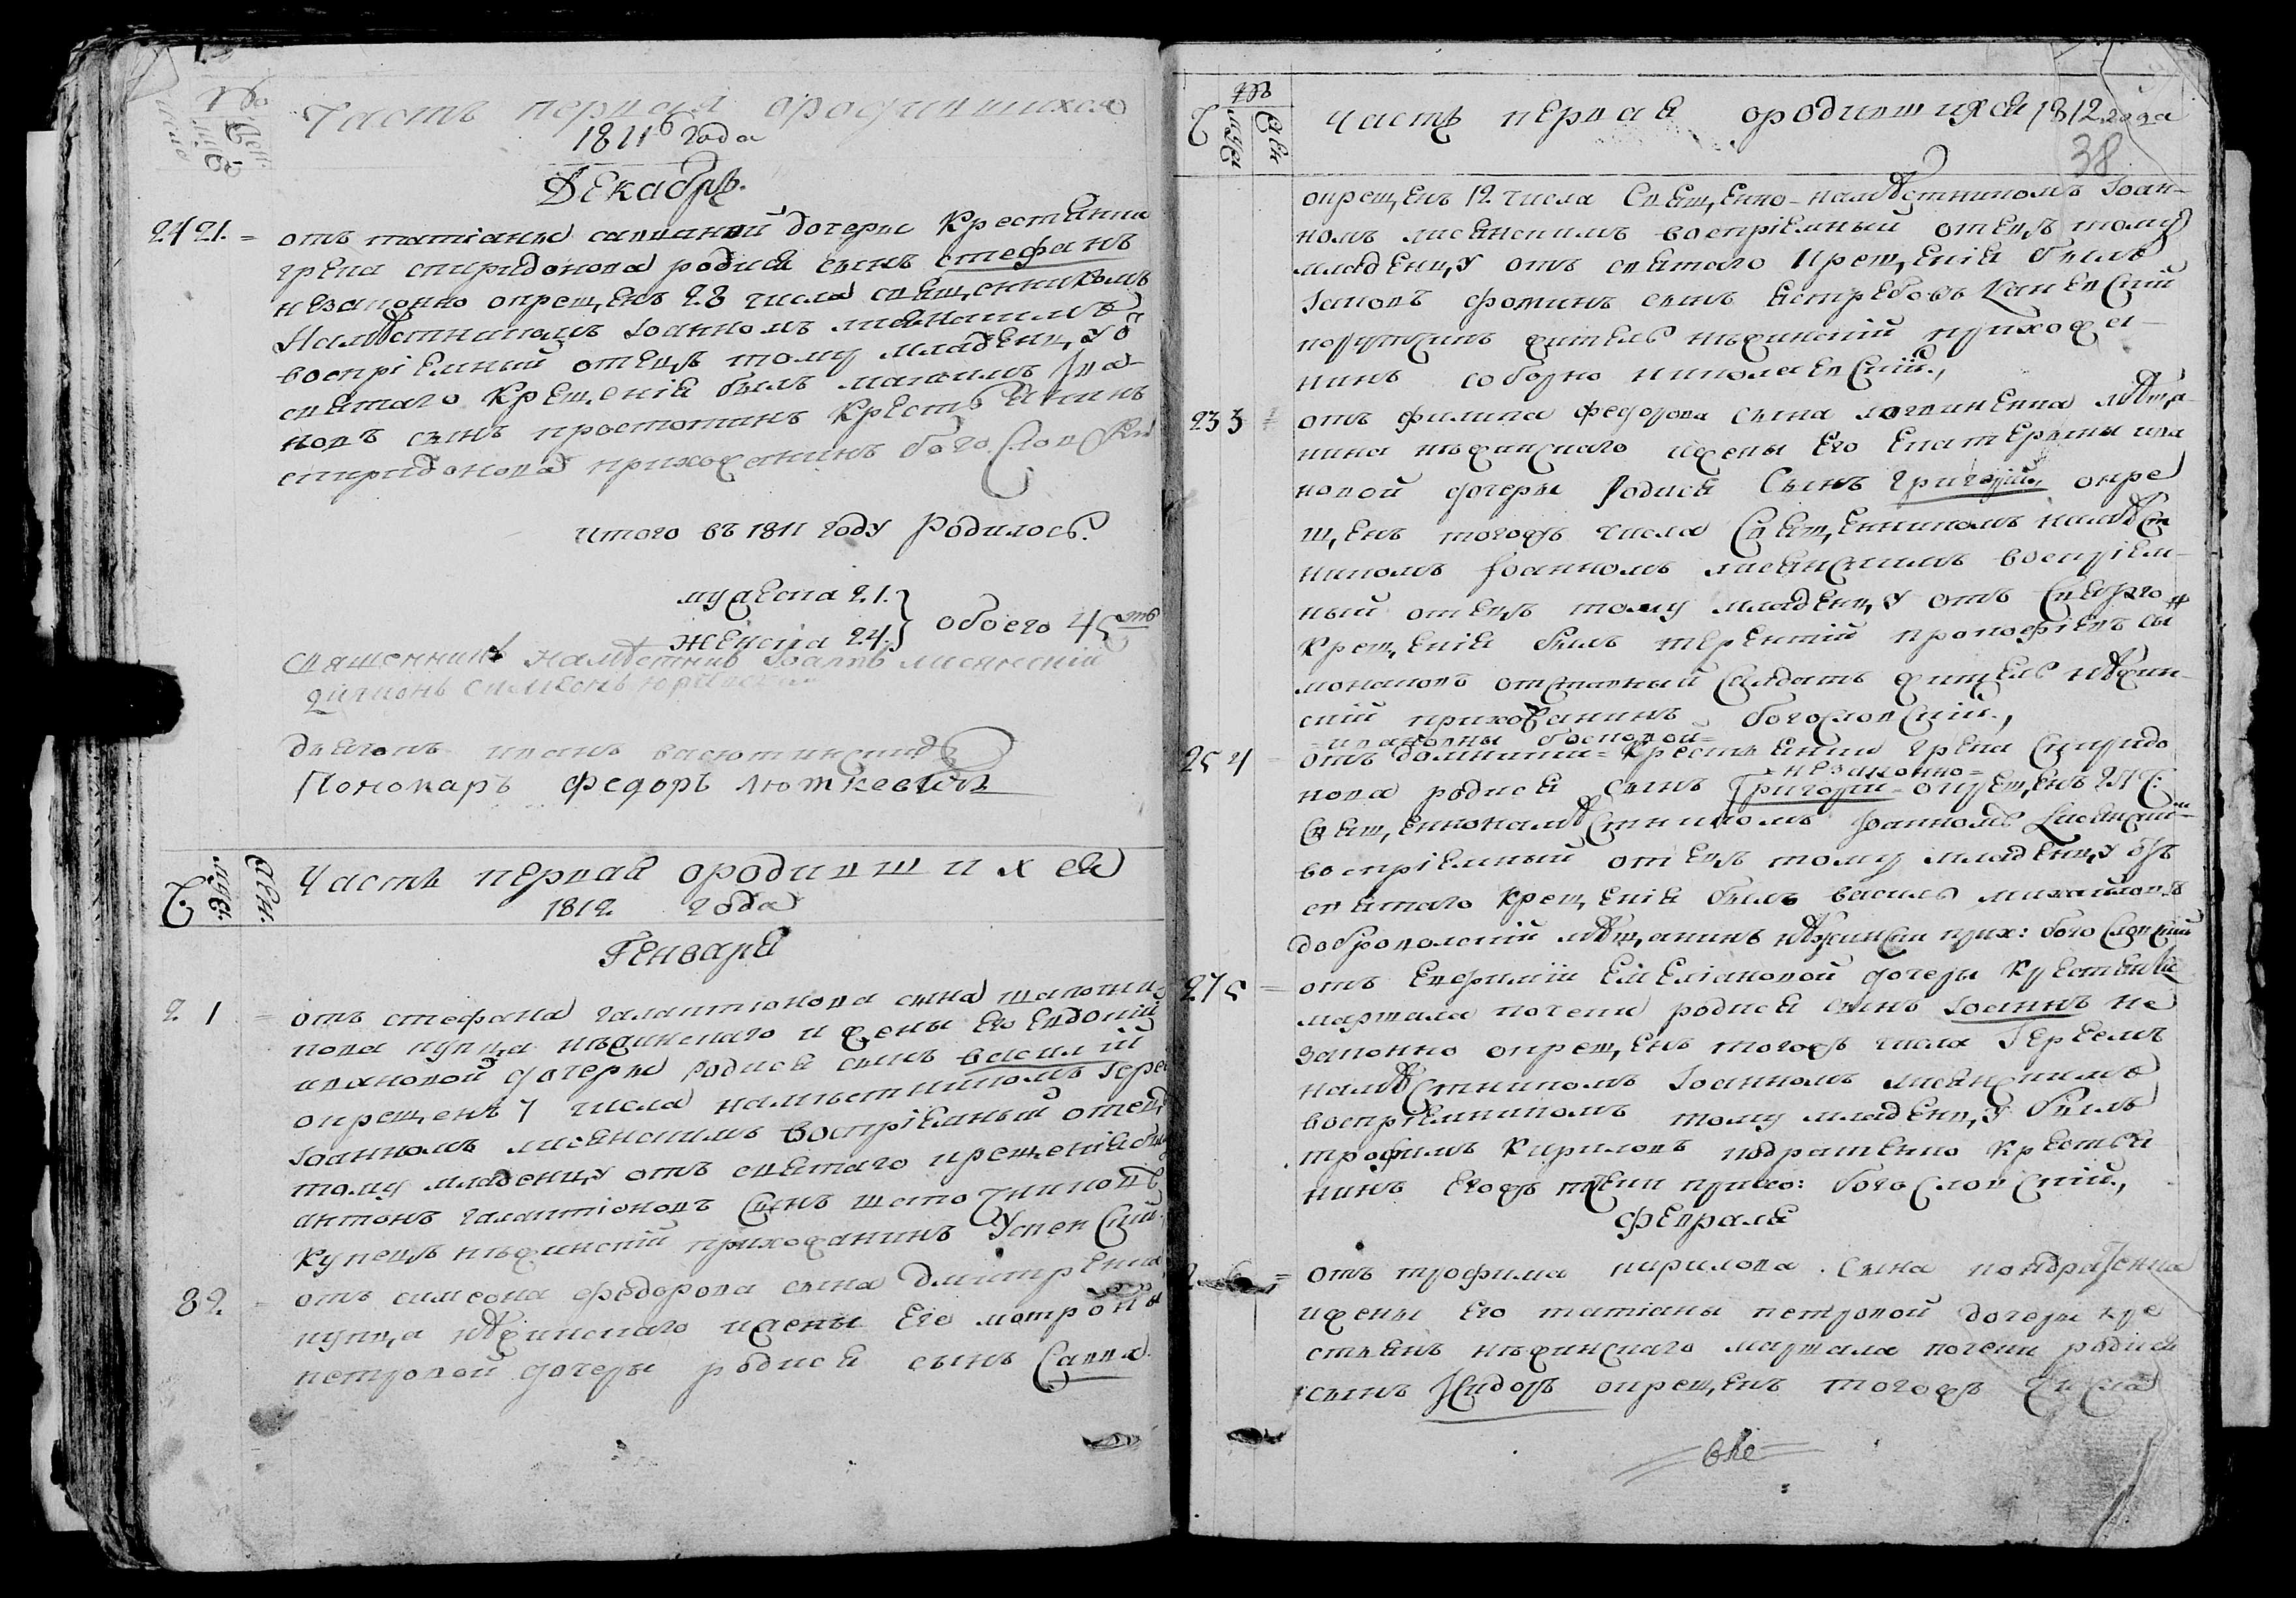 Часть первая ородившихся
1811го года
Декабрь.
24 21. = отъ татіаны саввиной дочеры Крестянки
грека спиридонова родися сынъ стефанъ
незаконно окрещенъ 28 числа священникомъ
Намѣстникомъ Іоанномъ лисянскимъ
воспріемный отецъ тому младенцу ѿ
святаго Крещенія былъ максимъ Ива-
новъ сынъ Крестьянинъ
спиридонова прихожанинъ богословскій
итого въ 1811 году Родилось.
мужеска 21.
женска 24. } обоего 45
священникъ намѣстникъ Іоаннъ лисянскій
діяконъ иванъ васютинскій
Пономаръ Федоръ Люткевичъ
Ч. муж. жен. Часть первая ородившихся
1812. года
Генваря
2. 1 = отъ стефана галактіонова сына шапошни
кова купца нѣжинскаго и жены Его Евдокіи
ивановой дочеры родися сынъ василій
окрещенъ 7 числа намѣстникомъ Іере
Іоанномъ лисянскимъ воспріемный отец
тому младенцу отъ святаго крещенія бы
антонъ галактіоновъ сынъ шапошниковъ
Купецъ нѣжинскій прихожанинъ Успенскій
8 2. = отъ симеона федорова сына дмитрієва
купца нѣжинскаго ижены Его мотроны
петровой дочеры родися сынъ Савва
Ч муж жен Часть первая ородившихся 1812 года
38
окрещенъ 12 числа Священно-намѣстникомъ Іоан-
номъ лисянскимъ воспріемный отецъ тому
младенцу отъ святаго Крещенія былъ
Іаковъ фоминъ сынъ ястребовъ Каневскій
житель нѣжинскій прихожа-
нинъ соборно николаевскій.,
23 3 = отъ филипа федорова сына логвиненка мѣща
нина нѣжинскаго ижены Его Екатерины ива
новой дочеры родися Сынъ Григорій, окре
щенъ тогожъ числа Священникомъ намѣст
никомъ Іоанномъ лисянскимъ воспріем-
ный отецъ тому младенцу отъ Святаго
Крещенія былъ терентій прокофіевъ сы
монаковъ отставный Салдатъ житель нѣжин-
скій прихожанинъ богословскій.,
25 4 = отъ домникіи = ивановны = Крестьянки грека Спиридо
нова родися сынъ Григорій = незаконно = окрещенъ 27 Ч:
Священнонамѣстникомъ Іоанномъ Лисянским-
воспріемный отецъ тому младенцу ѿ
святаго крещенія былъ василь михайловъ
доброволскій мѣщанинъ нѣжинскій прих: богословскій
27 5 = отъ Евфиміи Емеліановой дочеры Крестянки
маршала почеки родися сынъ Іоаннъ не
законно окрещенъ тогожъ числа Іереемъ
намѣстникомъ Іоанномъ лисянскимъ
воспріемникомъ тому младенцу былъ
трофимъ Кириловъ кондратенко Крестья
нинъ Егожъ почеки прихо: богословскій.,
февраля
6 = отъ трофима кирилова сына кондратенка
ижены Его татіаны петровой дочеры кре
стьянъ нѣжинскаго маршала почеки родися
сынъ Исидоръ окрещенъ тогожъ числа